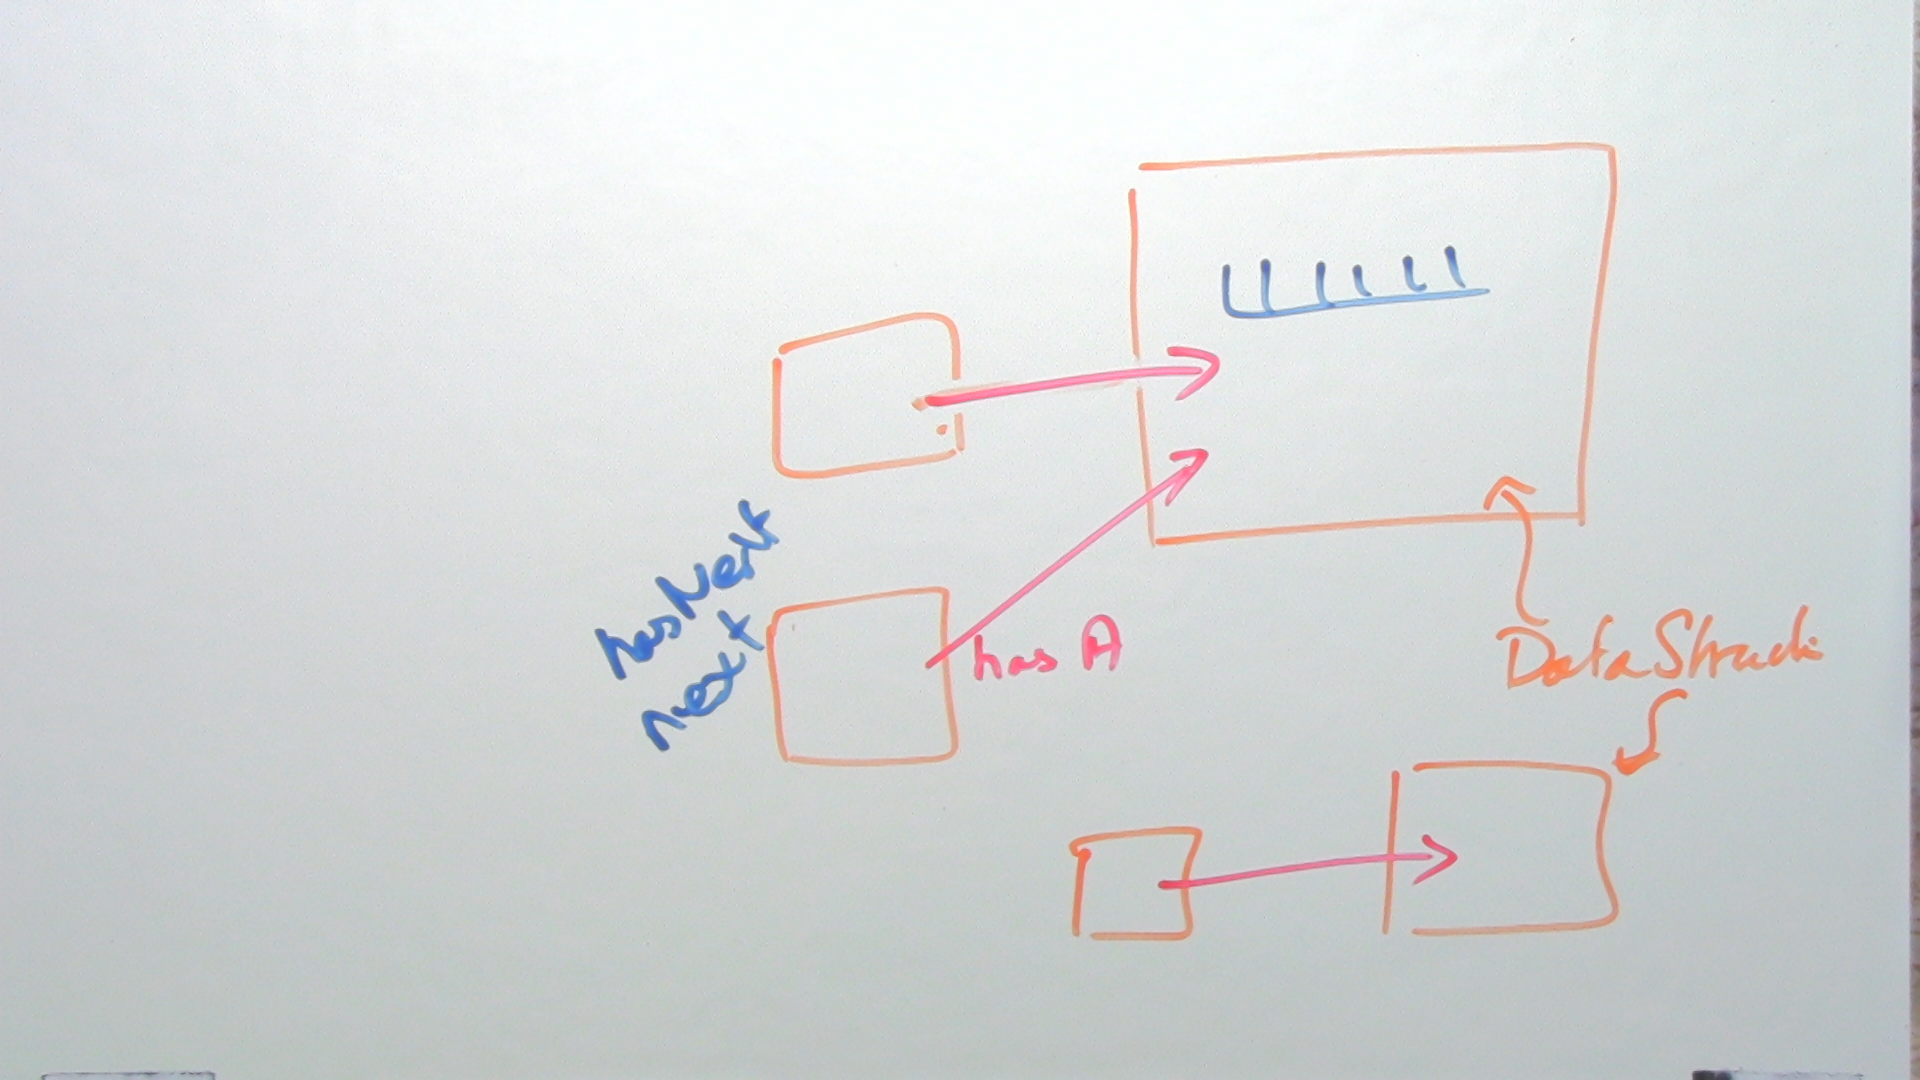 hasNext
next
has A
DataStructi